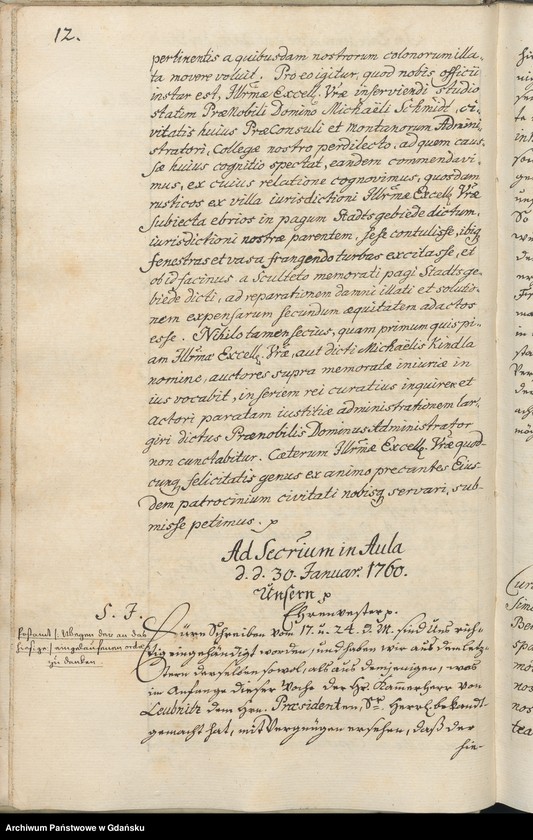 12.
pertinentis a quibusdam nostrorum colonorum illa-
ta movere voluit. Pro eo igitur, quod nobis officii
instar est, Illrmæ Excell. Vræ inserviendi studio
statim Præ Nobili Domino Michaëli Schmidt, ci-
vitatis huius Præ Consuli et montanorum Admini-
stratori, Collegæ nostro perdilecto, ad quem caus-
sæ huius cognitio spectat, eandem commendavi-
mus, ex cuius relatione cognovimus, quosdam
rusticos ex villa iurisdictioni Illrmæ Excell. Vræ
subiecta ebrios in pagum Stadtsgebiede dictum,
iurisdictioni nostræ parentem, sese contulisse, ibiq
fenestras et vasa frangendo turbas excitasse, et
ob id facinus a Sculteto memorati pagi Stadtsge-
biede dicti, ad reparationem damni illati et solutio-
nem expensarum secundum æquitatem adactos
esse. Nihilo tamen secius, quam primum quispi-
am Illrmæ Excell. Vræ, aut dicti Michaëlis Kindla
nomine, auctores supra memoratæ iniuriæ in
ius vocabit, in seriem rei curatius inquirere et
actori paratam iustitiæ administrationem lar-
giri dictus Prænobilis Dominus Administrator
non cunctabitur. Cæterum Illrmæ Excell. Vræ quod-
cunq felicitatis genus ex animo precantes Eius-
dem patrocinium civitati nobisq servari, sub-
misse petimus. p
Ad Secrium in Aula
d. d. 30. Januar. 1760.
Unsern p
S. F. Ehrenvester p.
Eure Schreiben vom 17. u. 24. d. M. sind Uns rich-
tig eingehändigt worden, und haben wir aus dem letz-
tern derselben sowol, als aus demjenigen, was
im Anfange dieser Woche der Hr. Kammerherr von
Leubnitz dem Hrn. Præsidenten, Sr. Herrl. bekandt
gemacht hat, mit Vergnügen ersehen, daß der
hie-
Postamt /: Wegen der an das
hiesige :/ eingelaufenen ordre
zu danken
Archiwum Państwowe w Gdańsku